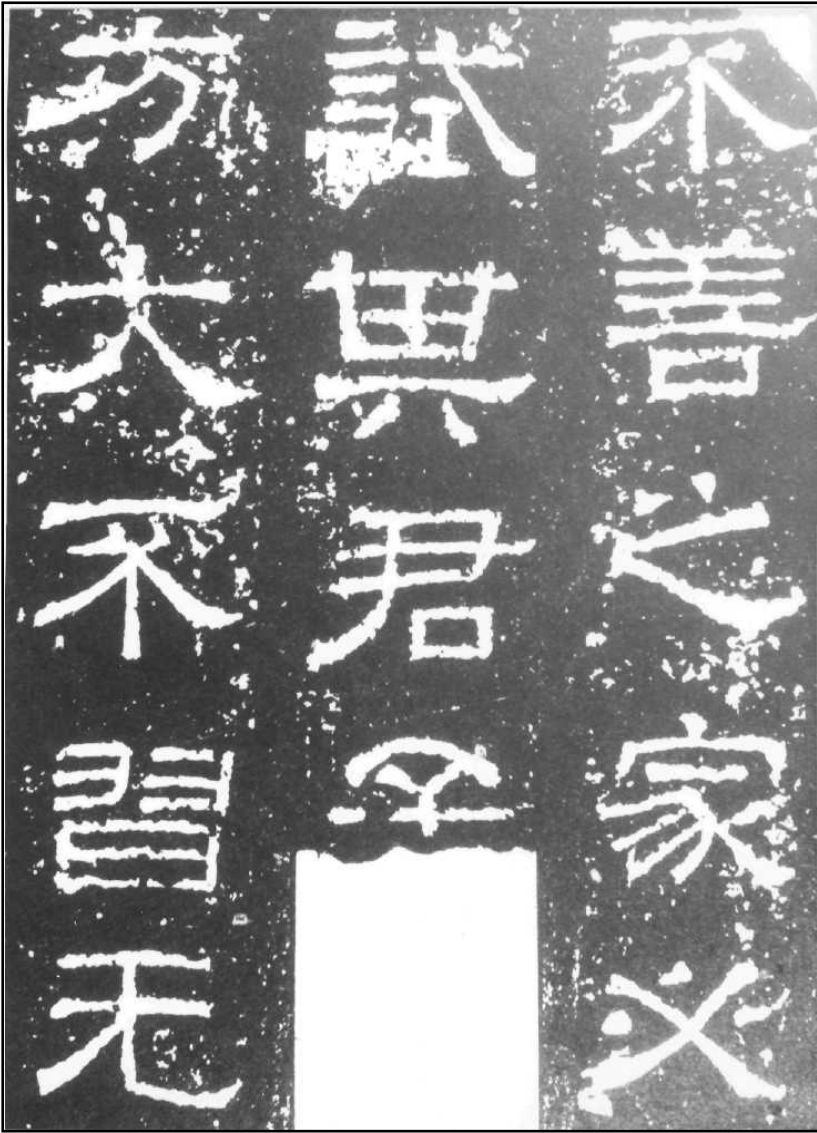 不善之家必
試其君子
方大不習无